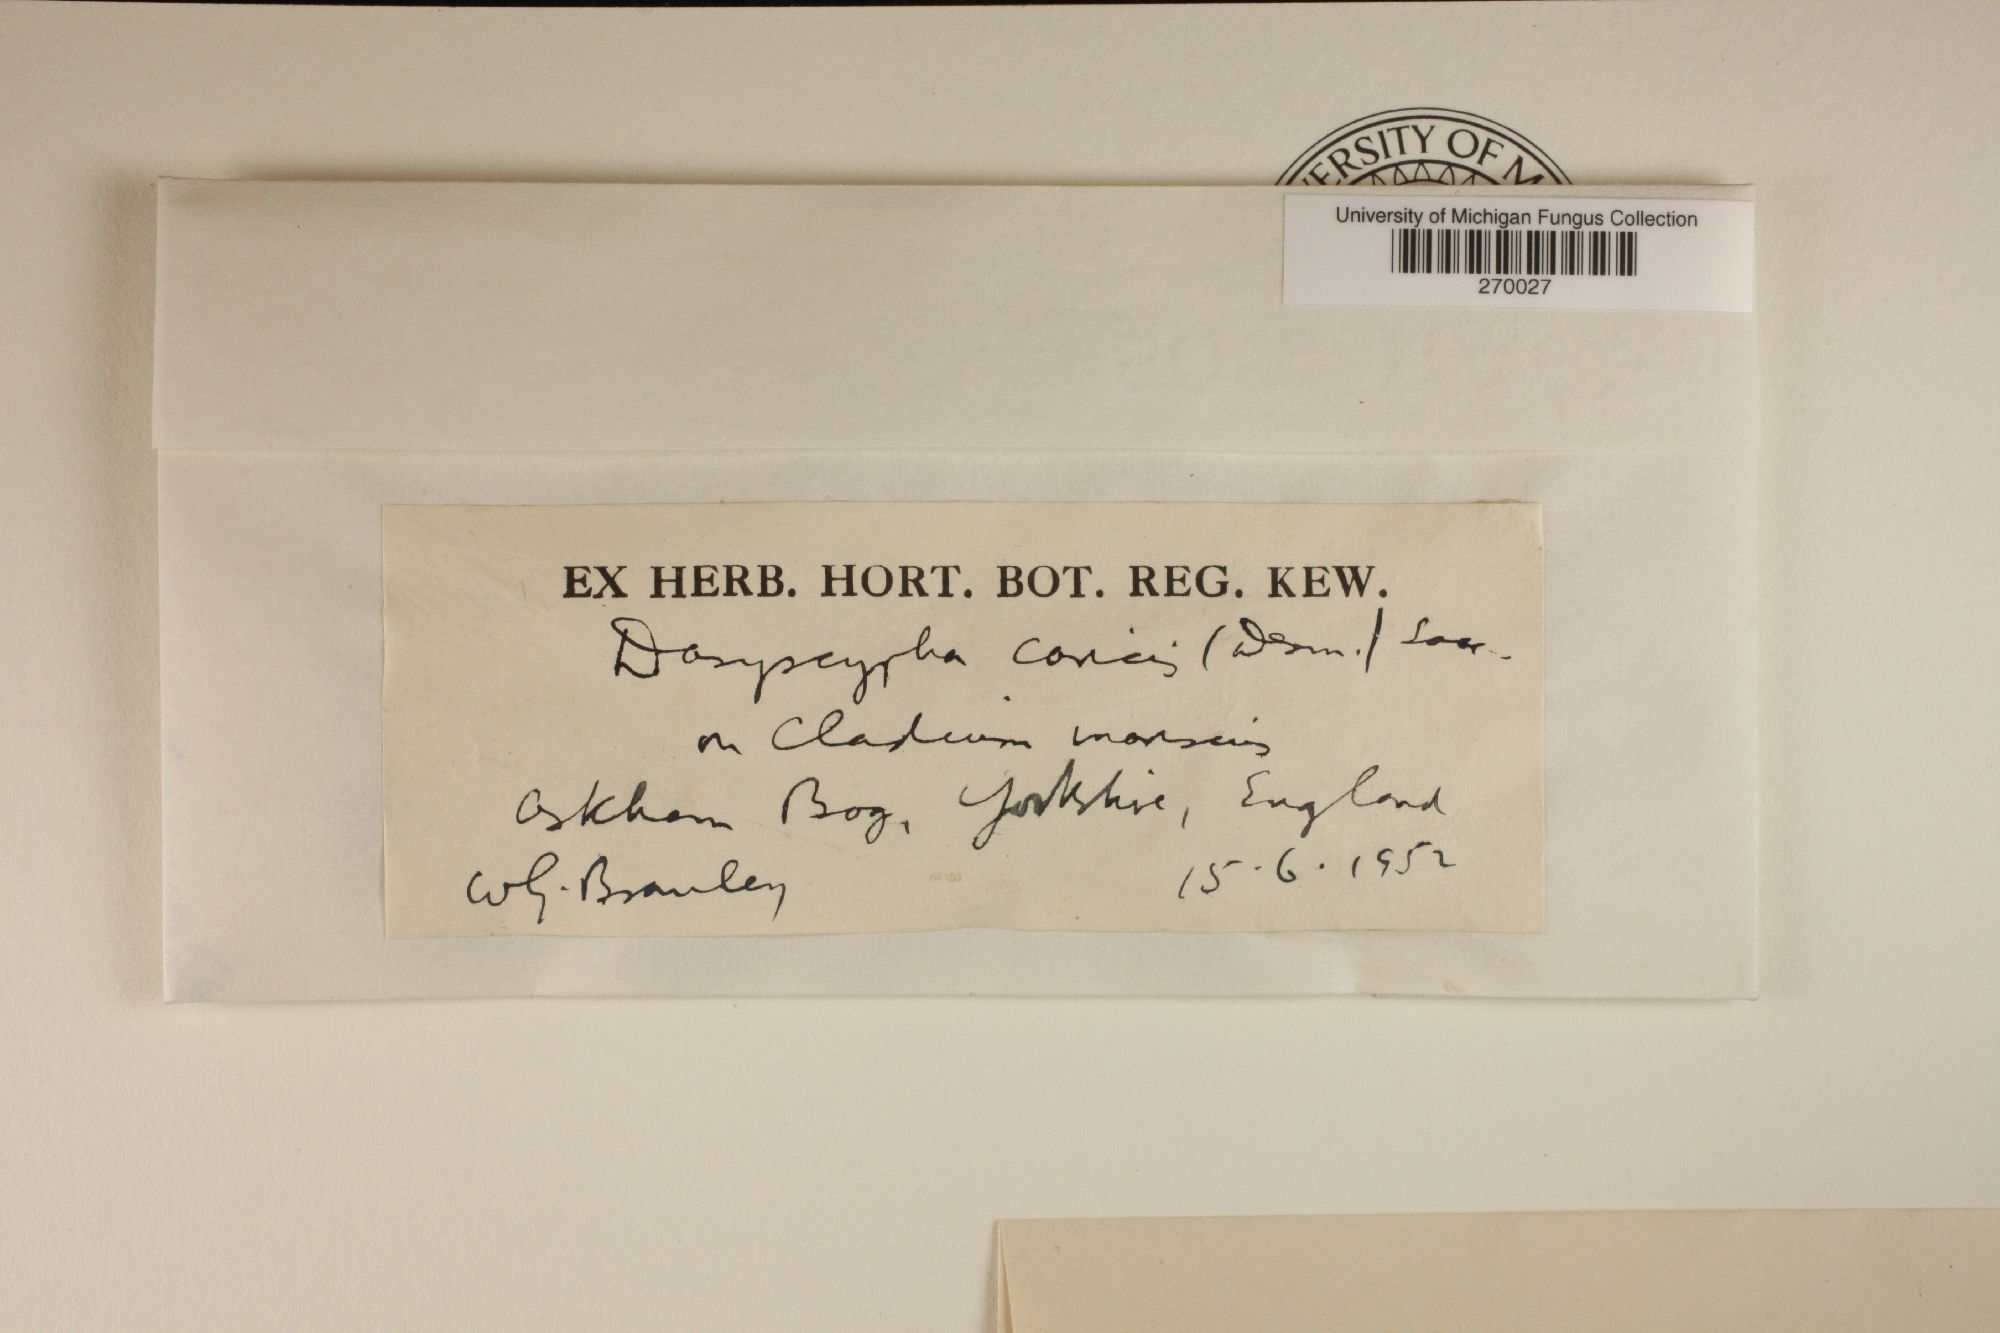 ERSITY OF M
University of Michigan Fungus Collection
270027
EX HERB. HORT. BOT. REG. KEW.
Dasyscypha caricis (Desm.) Sacc.
on Cladium mariscus
Askham Bog, Yorkshire, England
WG. Bramley 15.6.1952